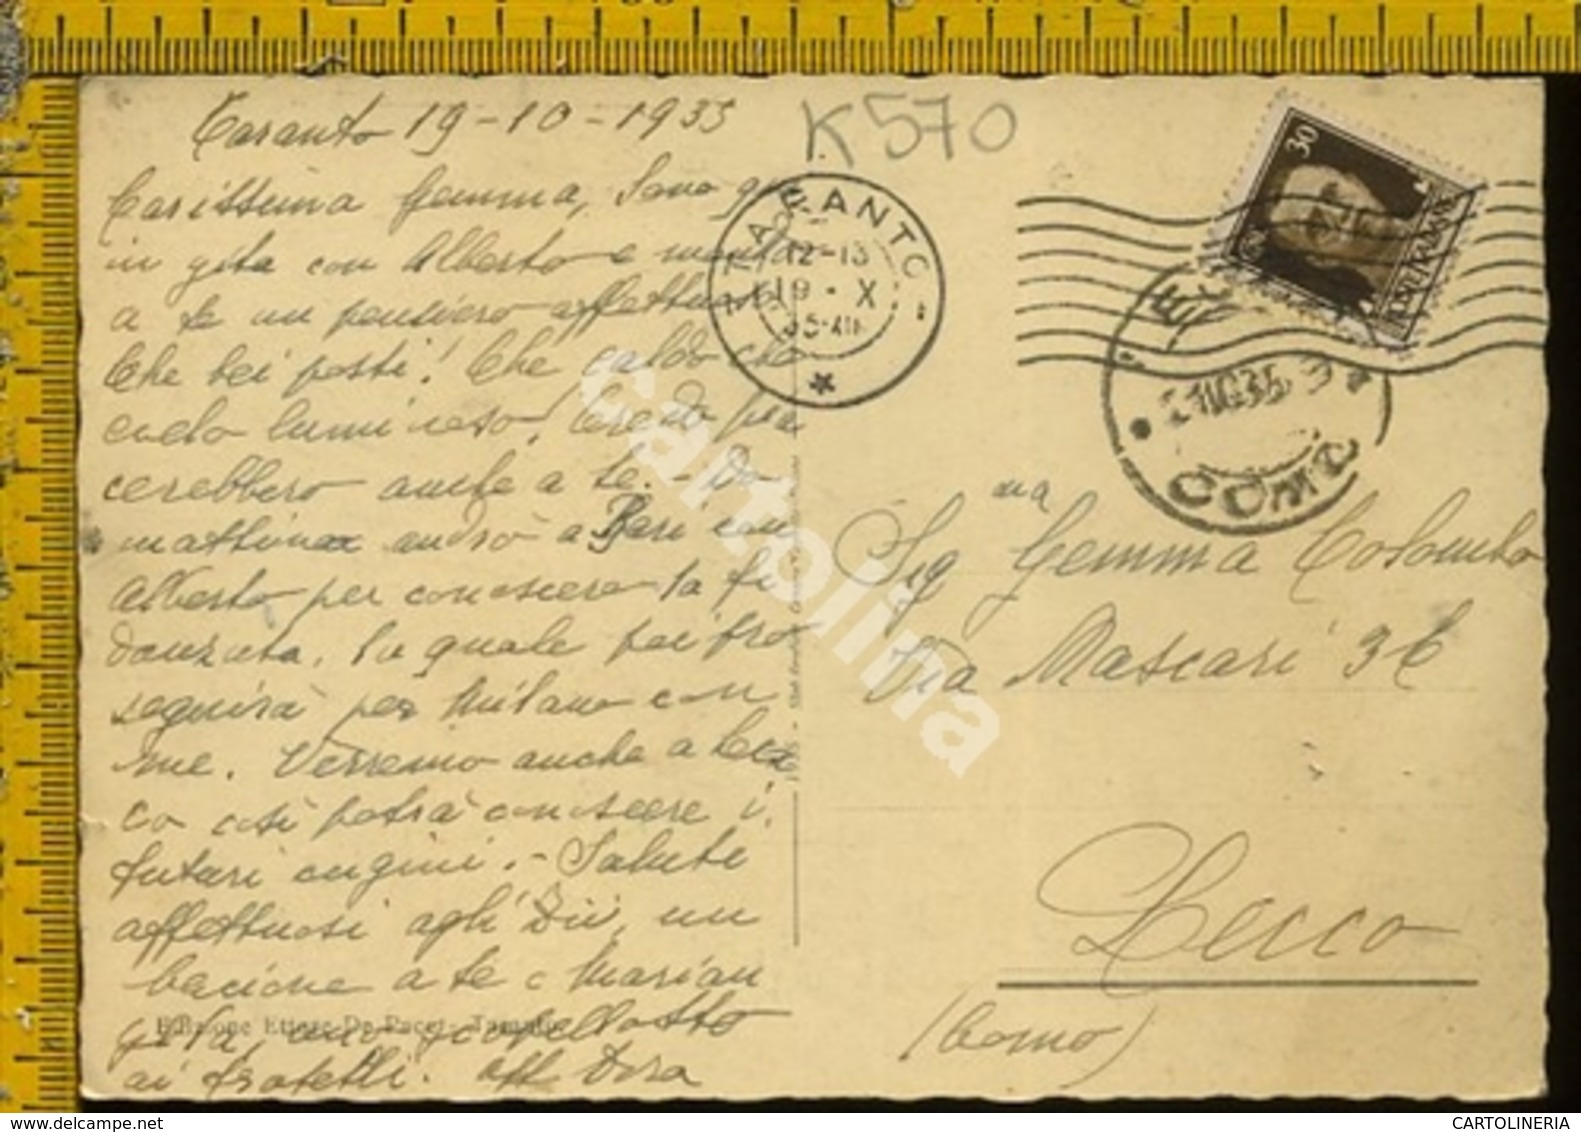 Taranto 19-10-1935
K570
Carissima Gemma, Sono qui
in gita con Alberto e mando
a te un pensiero affettuoso
Che bei posti! Che caldo che
cielo luminoso! Credo pia
cerebbero anche a te. - Do
mattina andrò a Bari con
Alberto per conoscere la fi
danzata, la quale poi pro
seguirà per Milano con
me. Verremo anche a Lec
co così potrà conoscere i
futuri cugini. - Saluti
affettuosi agli zii, un
bacione a te e Marian
gela, uno scapellotto
ai fratelli. aff Dora
Edizione Ettore De Pace - Taranto
TARANTO
12-13
19 - X
35-XIII
30
COMO
Sig na Gemma Colombo
Via Mascari 36
Lecco
(Como)
cartolina
CARTOLINERIA